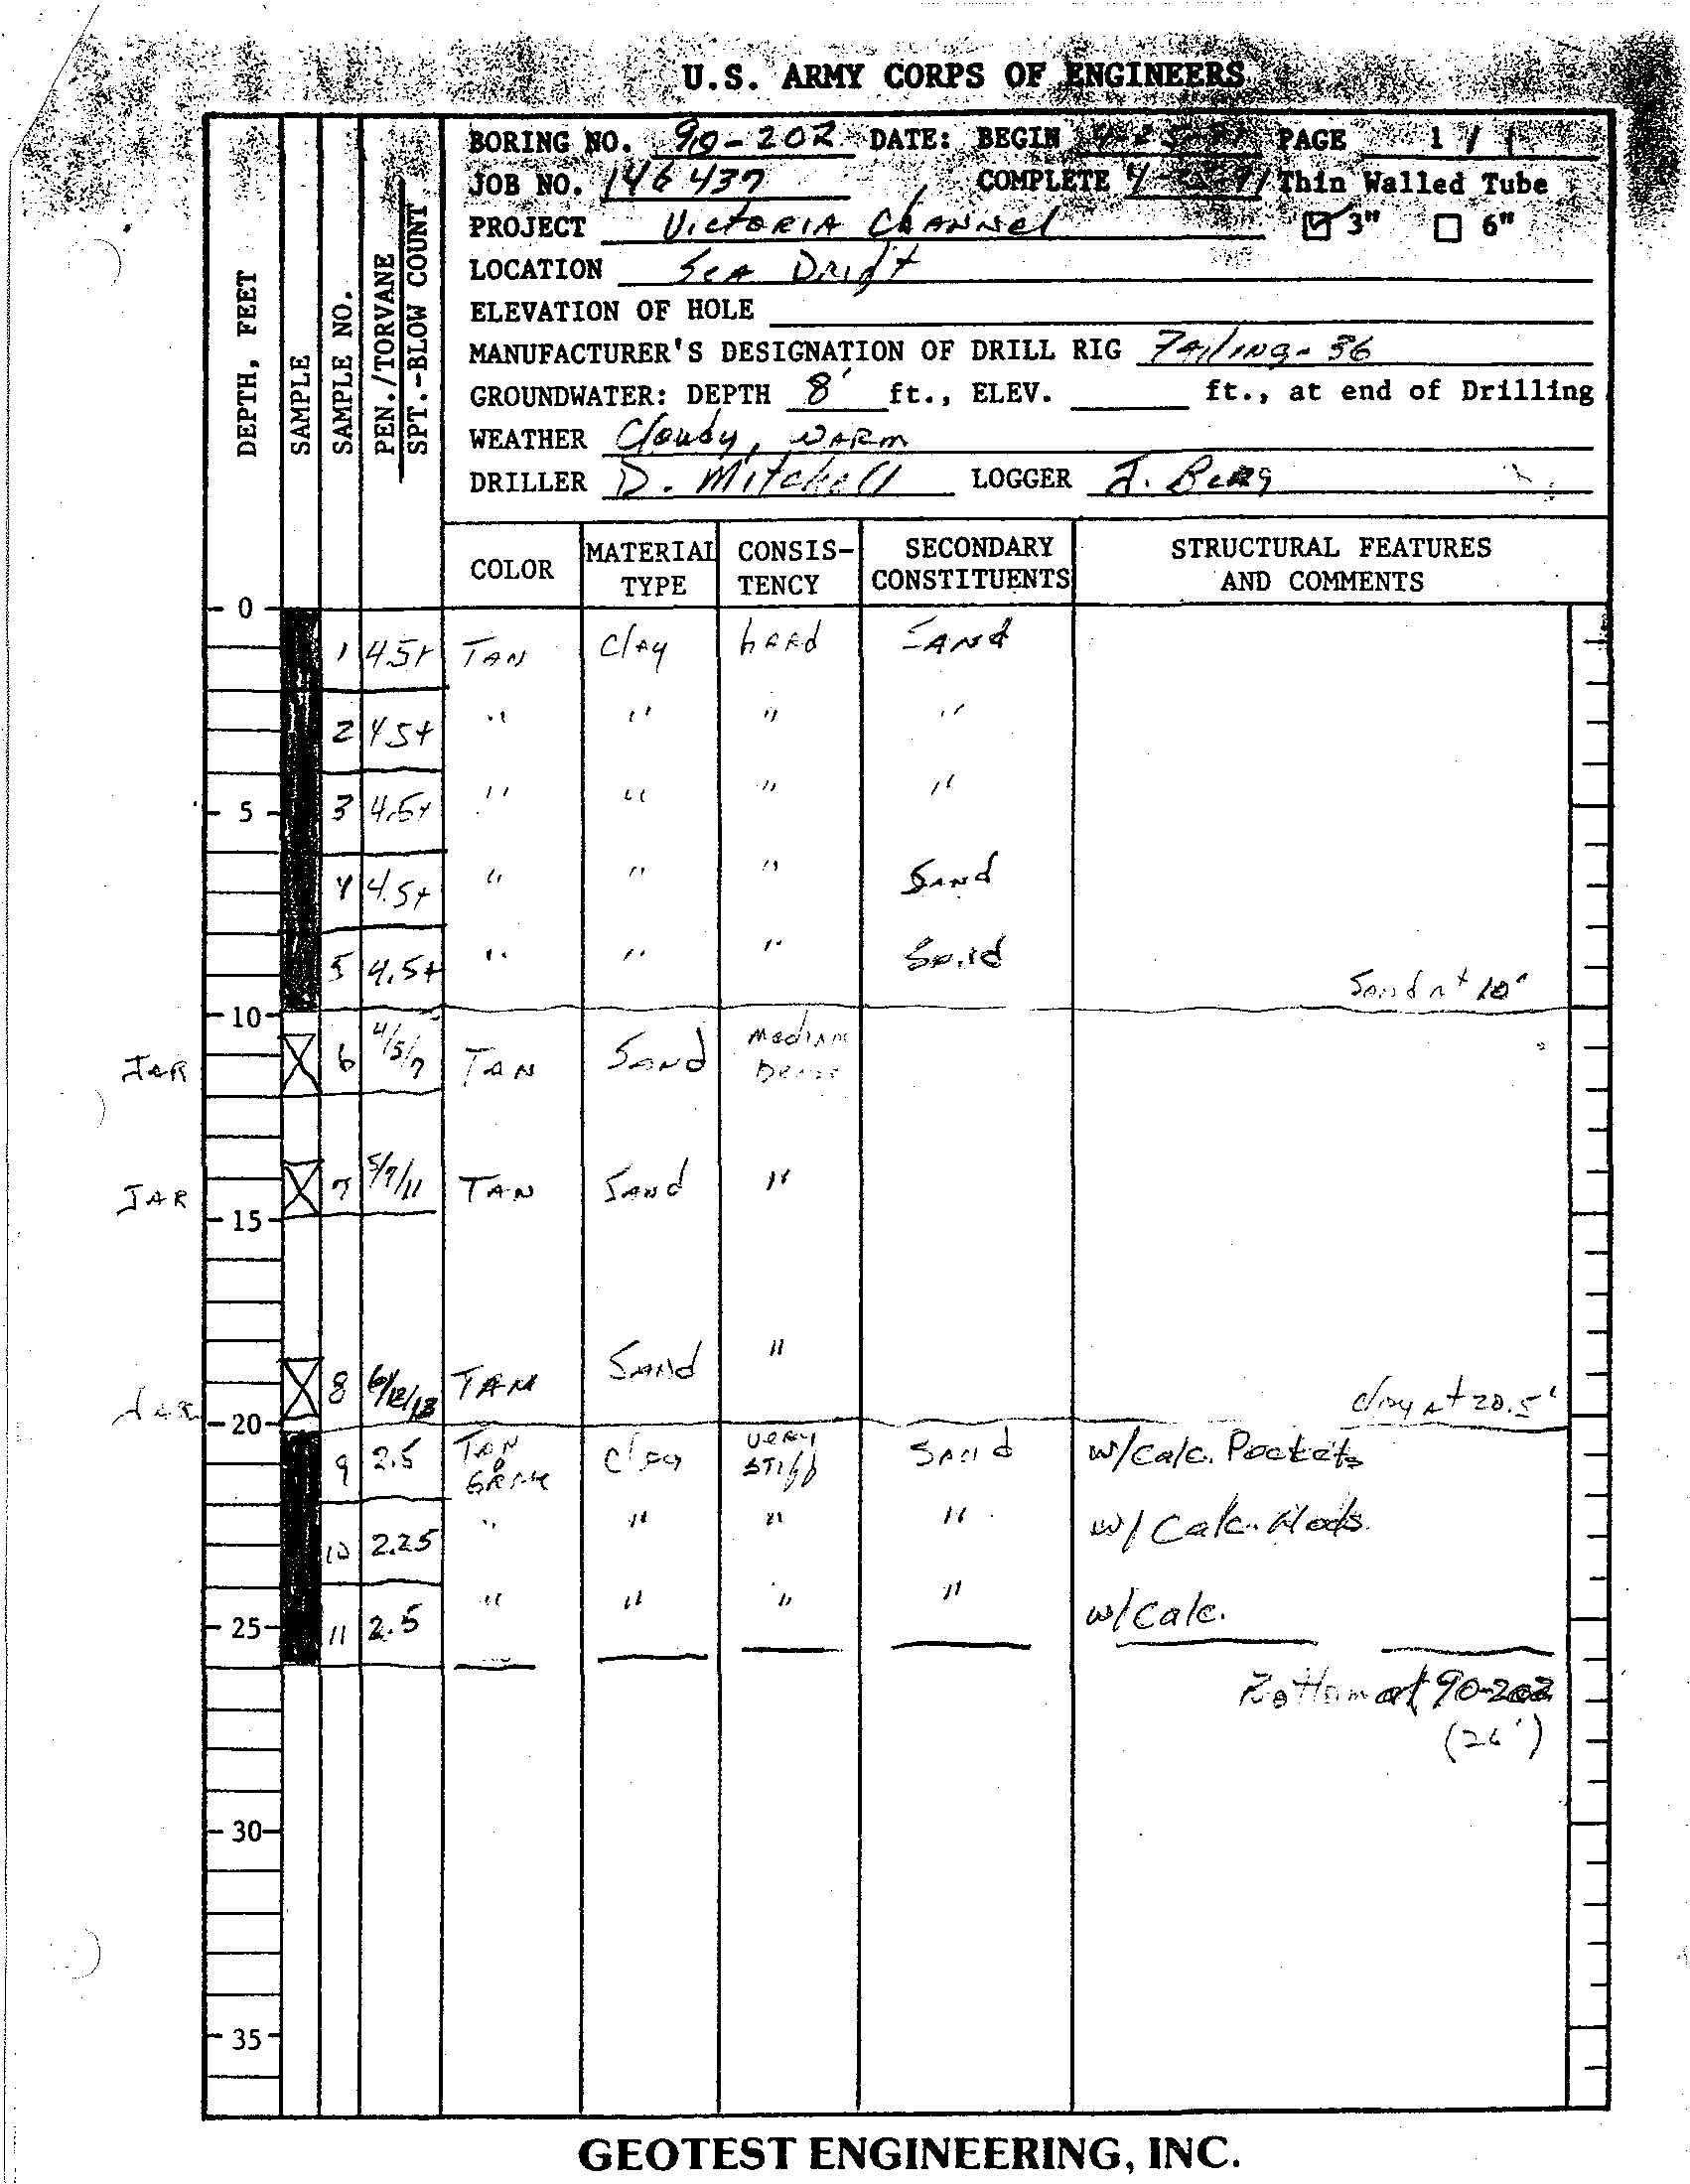 U.S. ARMY CORPS OF ENGINEERS
BORING NO. 90-202 DATE: BEGIN PAGE 1 / 1
JOB NO. 146437 COMPLETE Thin Walled Tube
PROJECT Victoria Channel 3" 6"
LOCATION Sea Drift
ELEVATION OF HOLE
MANUFACTURER'S DESIGNATION OF DRILL RIG Failing-36
GROUNDWATER: DEPTH 8' ft., ELEV. ft., at end of Drilling
WEATHER Cloudy, WARM
DRILLER D. Mitchell LOGGER J. Berg
DEPTH, FEET
SAMPLE
SAMPLE NO.
PEN./TORVANE
SPT.-BLOW COUNT
COLOR MATERIAL TYPE CONSIS-TENCY SECONDARY CONSTITUENTS STRUCTURAL FEATURES AND COMMENTS
0
1 4.5+ TAN Clay hard SAND
2 4.5+ " " " "
5 3 4.5+ " " " "
4 4.5+ " " " Sand
5 4.5+ " " " Sand
Sand at 10'
10
JAR 6 4/5/7 TAN Sand Medium Dense
JAR 7 5/7/11 TAN Sand "
15
JAR 8 6/12/13 TAN Sand "
Clay at 20.5'
20
9 2.5 TAN & GRAY Clay very stiff Sand w/calc. Pockets
10 2.25 " " " " w/ Calc. Nods.
25 11 2.5 " " " " w/Calc.
Bottom at 90-202
(26')
30
35
GEOTEST ENGINEERING, INC.